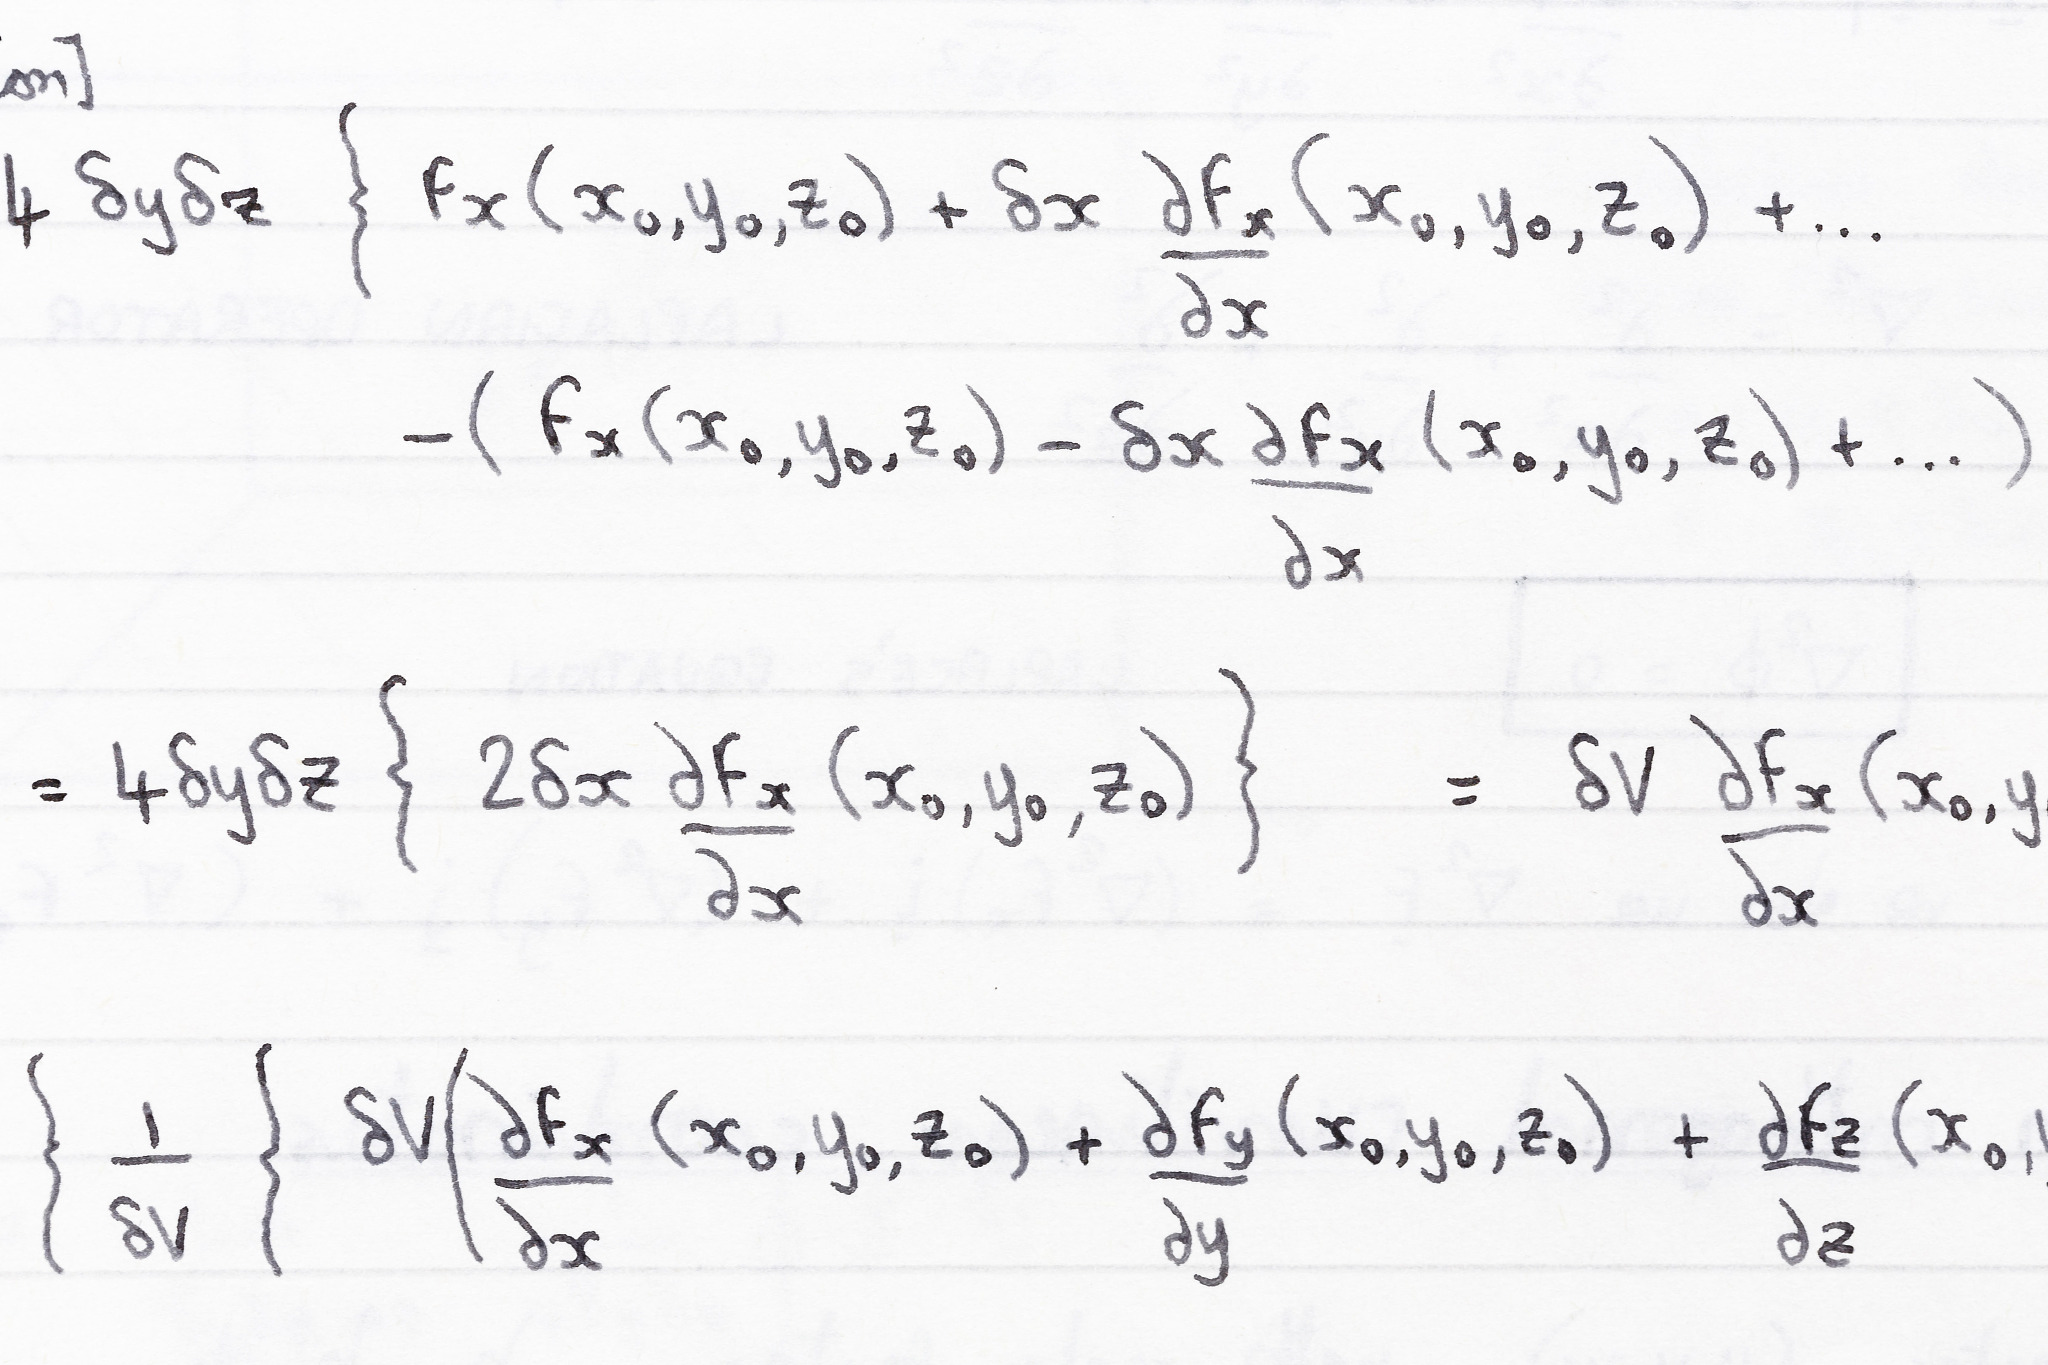 on]
4 δyδz { Fx(x₀,y₀,z₀) + δx ∂Fx/∂x (x₀,y₀,z₀) + ...
-( Fx(x₀,y₀,z₀) - δx ∂Fx/∂x (x₀,y₀,z₀) + ... )
= 4δyδz { 2δx ∂Fx/∂x (x₀,y₀,z₀) } = δV ∂Fx/∂x (x₀,y
{ 1/δV { δV( ∂Fx/∂x (x₀,y₀,z₀) + ∂Fy/∂y (x₀,y₀,z₀) + ∂Fz/∂z (x₀,y